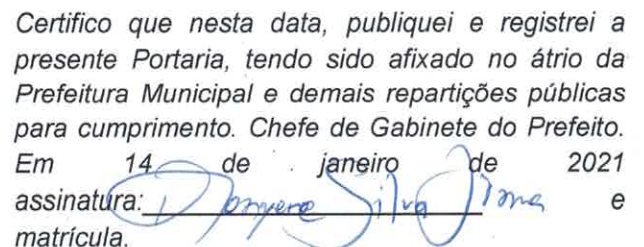 Certifico que nesta data, publiquei e registrei a
presente Portaria, tendo sido afixado no átrio da
Prefeitura Municipal e demais repartições públicas
para cumprimento. Chefe de Gabinete do Prefeito.
Em 14 de janeiro de 2021
assinatura: Silva e
matrícula.